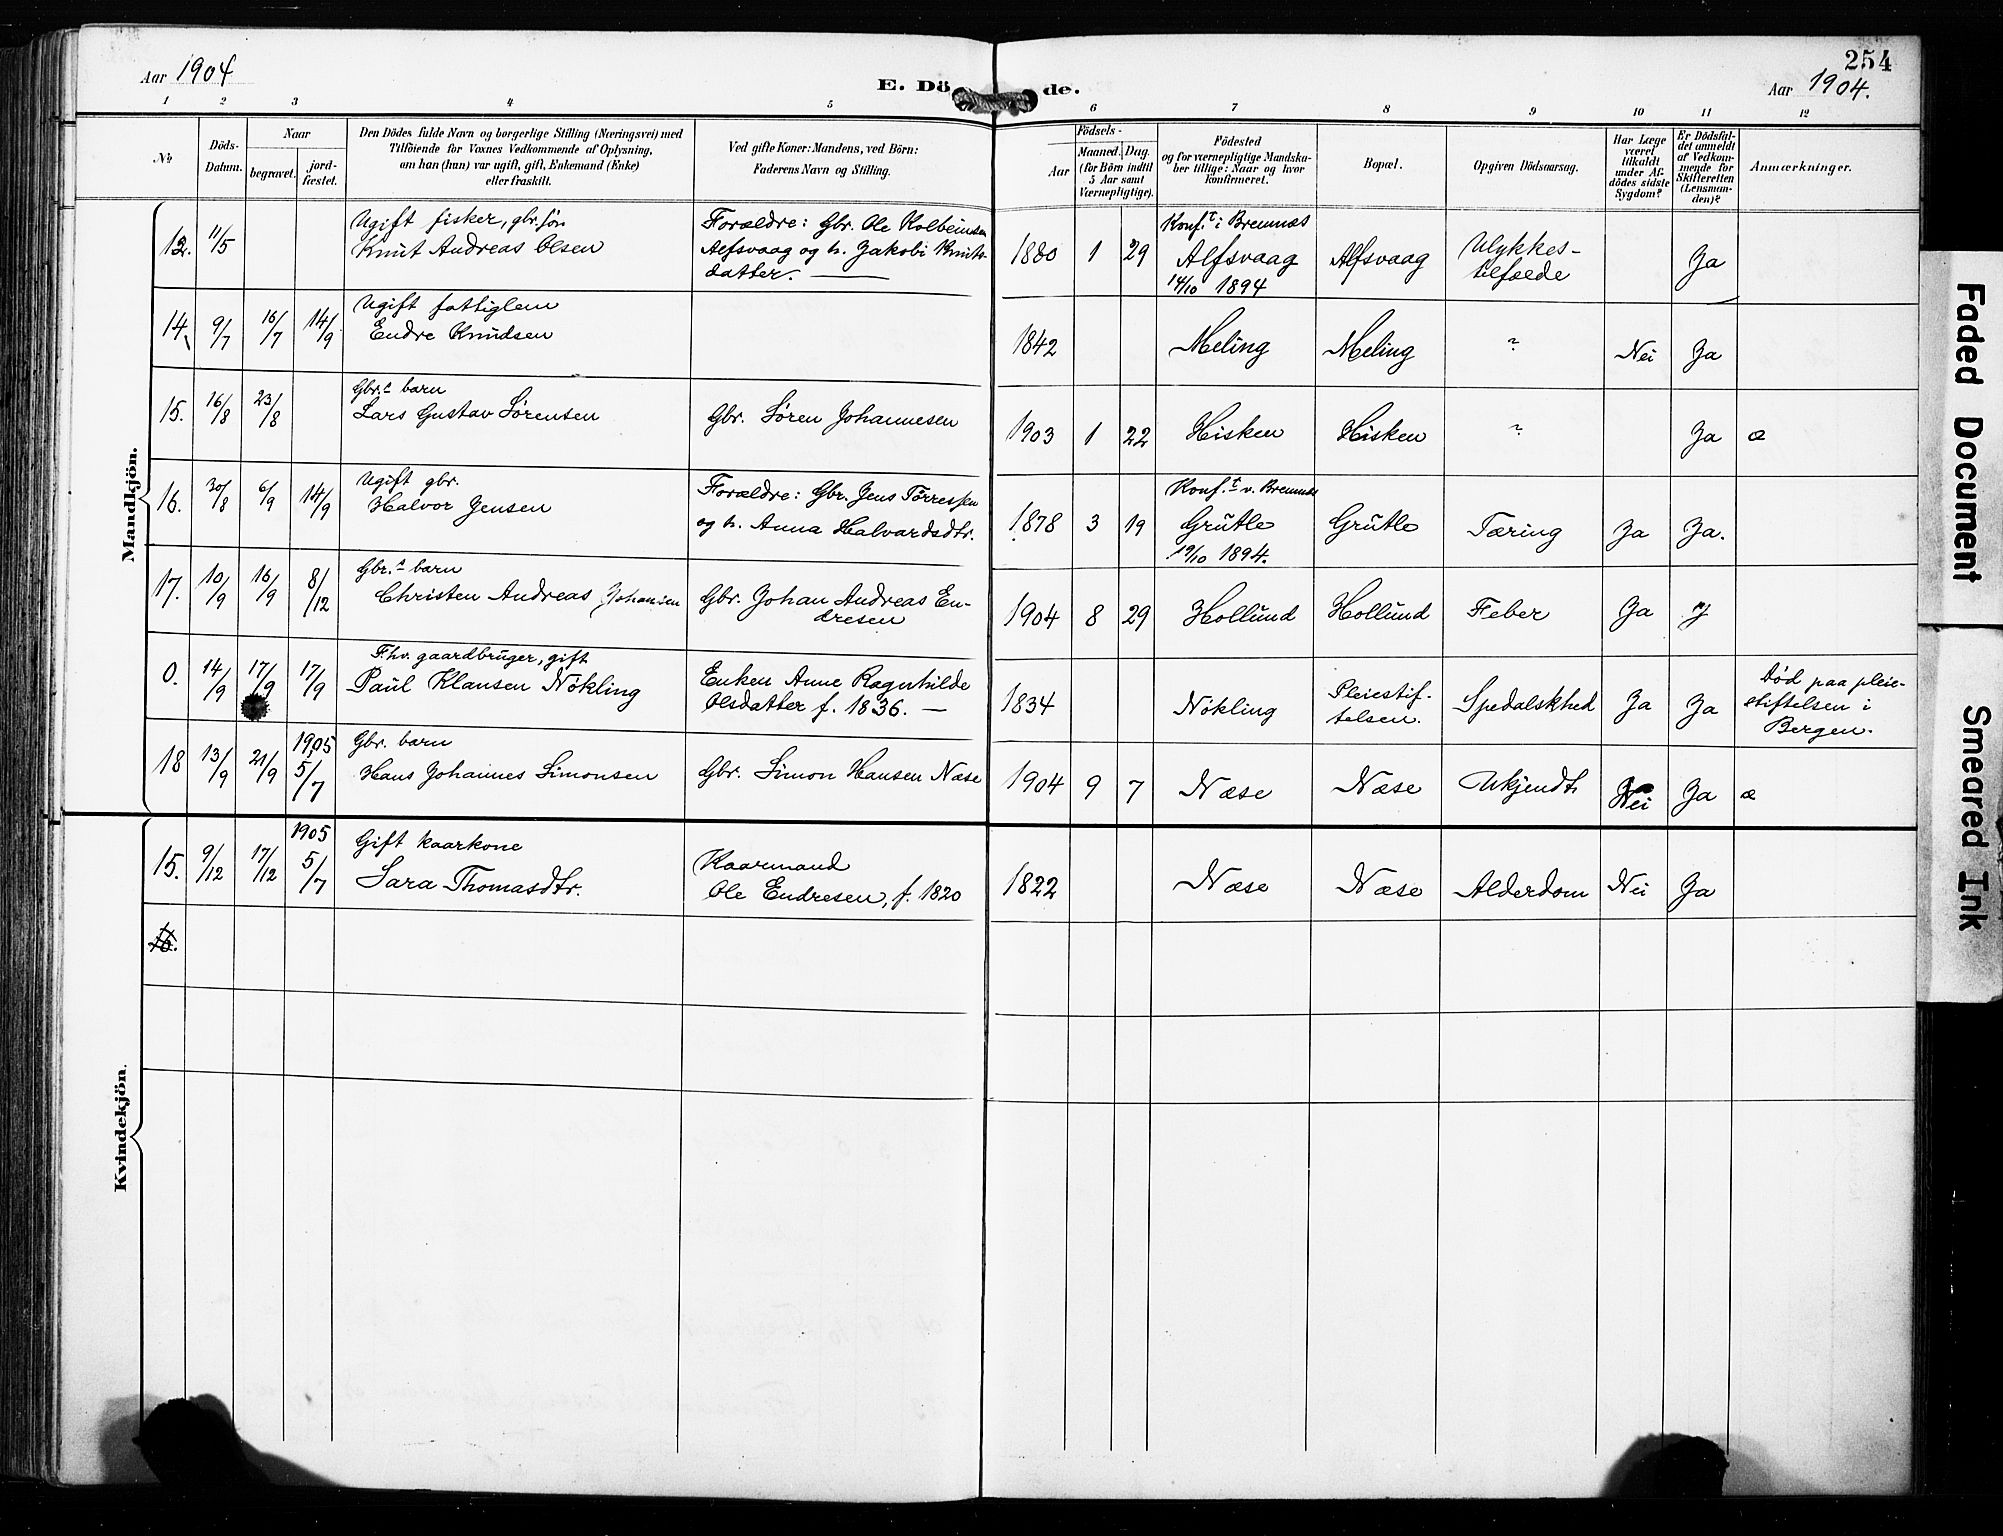 254
Aar 1904
E. Dö de.
Aar 1904.
1 2 3 4 5 6 7 8 9 10 11 12
№
Döds-
Datum.
Naar
begravet.
jord-
fæstet.
Den Dödes fulde Navn og borgerlige Stilling (Næringsvei) med
Tilföiende for Voxnes Vedkommende af Oplysning,
om han (hun) var ugift, gift, Enkemand (Enke)
eller fraskilt.
Ved gifte Koner: Mandens, ved Börn:
Faderens Navn og Stilling.
Födsels-
Aar
Maaned. Dag.
(for Börn indtil
5 Aar samt
Værnepligtige).
Födested
og for værnepligtige Mandska-
ber tillige: Naar og hvor
konfirmeret.
Bopæl.
Opgiven Dödsaarsag.
Har Læge
været
tilkaldt
under Af-
dödes sidste
Sygdom?
Er Dödsfal-
det anmeldt
af Vedkom-
mende for
Skifteretten
(Lensman-
den)?
Anmærkninger.
Mandkjön.
12. 11/5
Ugift fisker, gbr. søn
Knut Andreas Olsen
Forældre: Gbr. Ole Kolbeinsen
Alfsvaag og h. Jakobi Knuts-
datter. —
1880 1 29
Konf.t i Bremnæs
Alfsvaag
14/10 1894
Alfsvaag
Ulykkes-
tilfælde
Ja
14. 9/7 16/7 14/9
Ugift fattiglem
Endre Knudsen
1842
Meling Meling ? Nei Ja
15. 16/8 23/8
Gbr.s barn
Lars Gustav Sørensen
Gbr. Søren Johannesen
1903 1 22 Hisken Hisken ? Ja æ
16. 30/8 6/9 14/9
Ugift gbr.
Halvor Jensen
Forældre: Gbr. Jens Tørressen
og h. Anna Halvardsdtr.
1878 3 19
Konf.t v. Bremnæs
Grutle
19/10 1894.
Grutle Tæring Ja Ja.
17. 10/9 16/9 8/12
Gbr.s barn
Christen Andreas Johansen
Gbr. Johan Andreas En-
dresen
1904 8 29 Hollund Hollund Feber Ja
0. 14/9 17/9 17/9
F.hv. gaardbruger, gift
Paul Klausen Nökling
Enken Anne Ragnhilde
Olsdatter f. 1836. —
1834 Nökling
Pleiestif-
telsen.
Spedalskhed Ja Ja
Død paa pleie-
stiftelsen i
Bergen.
18 13/9 21/9
1905
5/7
Gbr. barn
Hans Johannes Simonsen
Gbr. Simon Hansen Næse
1904 9 7 Næse Næse Ukjendt. Nei Ja æ
Kvindekjön.
15. 9/12 17/12
1905
5/7
Gift kaarkone
Sara Thomasdtr.
Kaarmand
Ole Endresen, f. 1820
1822 Næse Næse Alderdom Nei Ja
16.
Faded Document
Smeared Ink